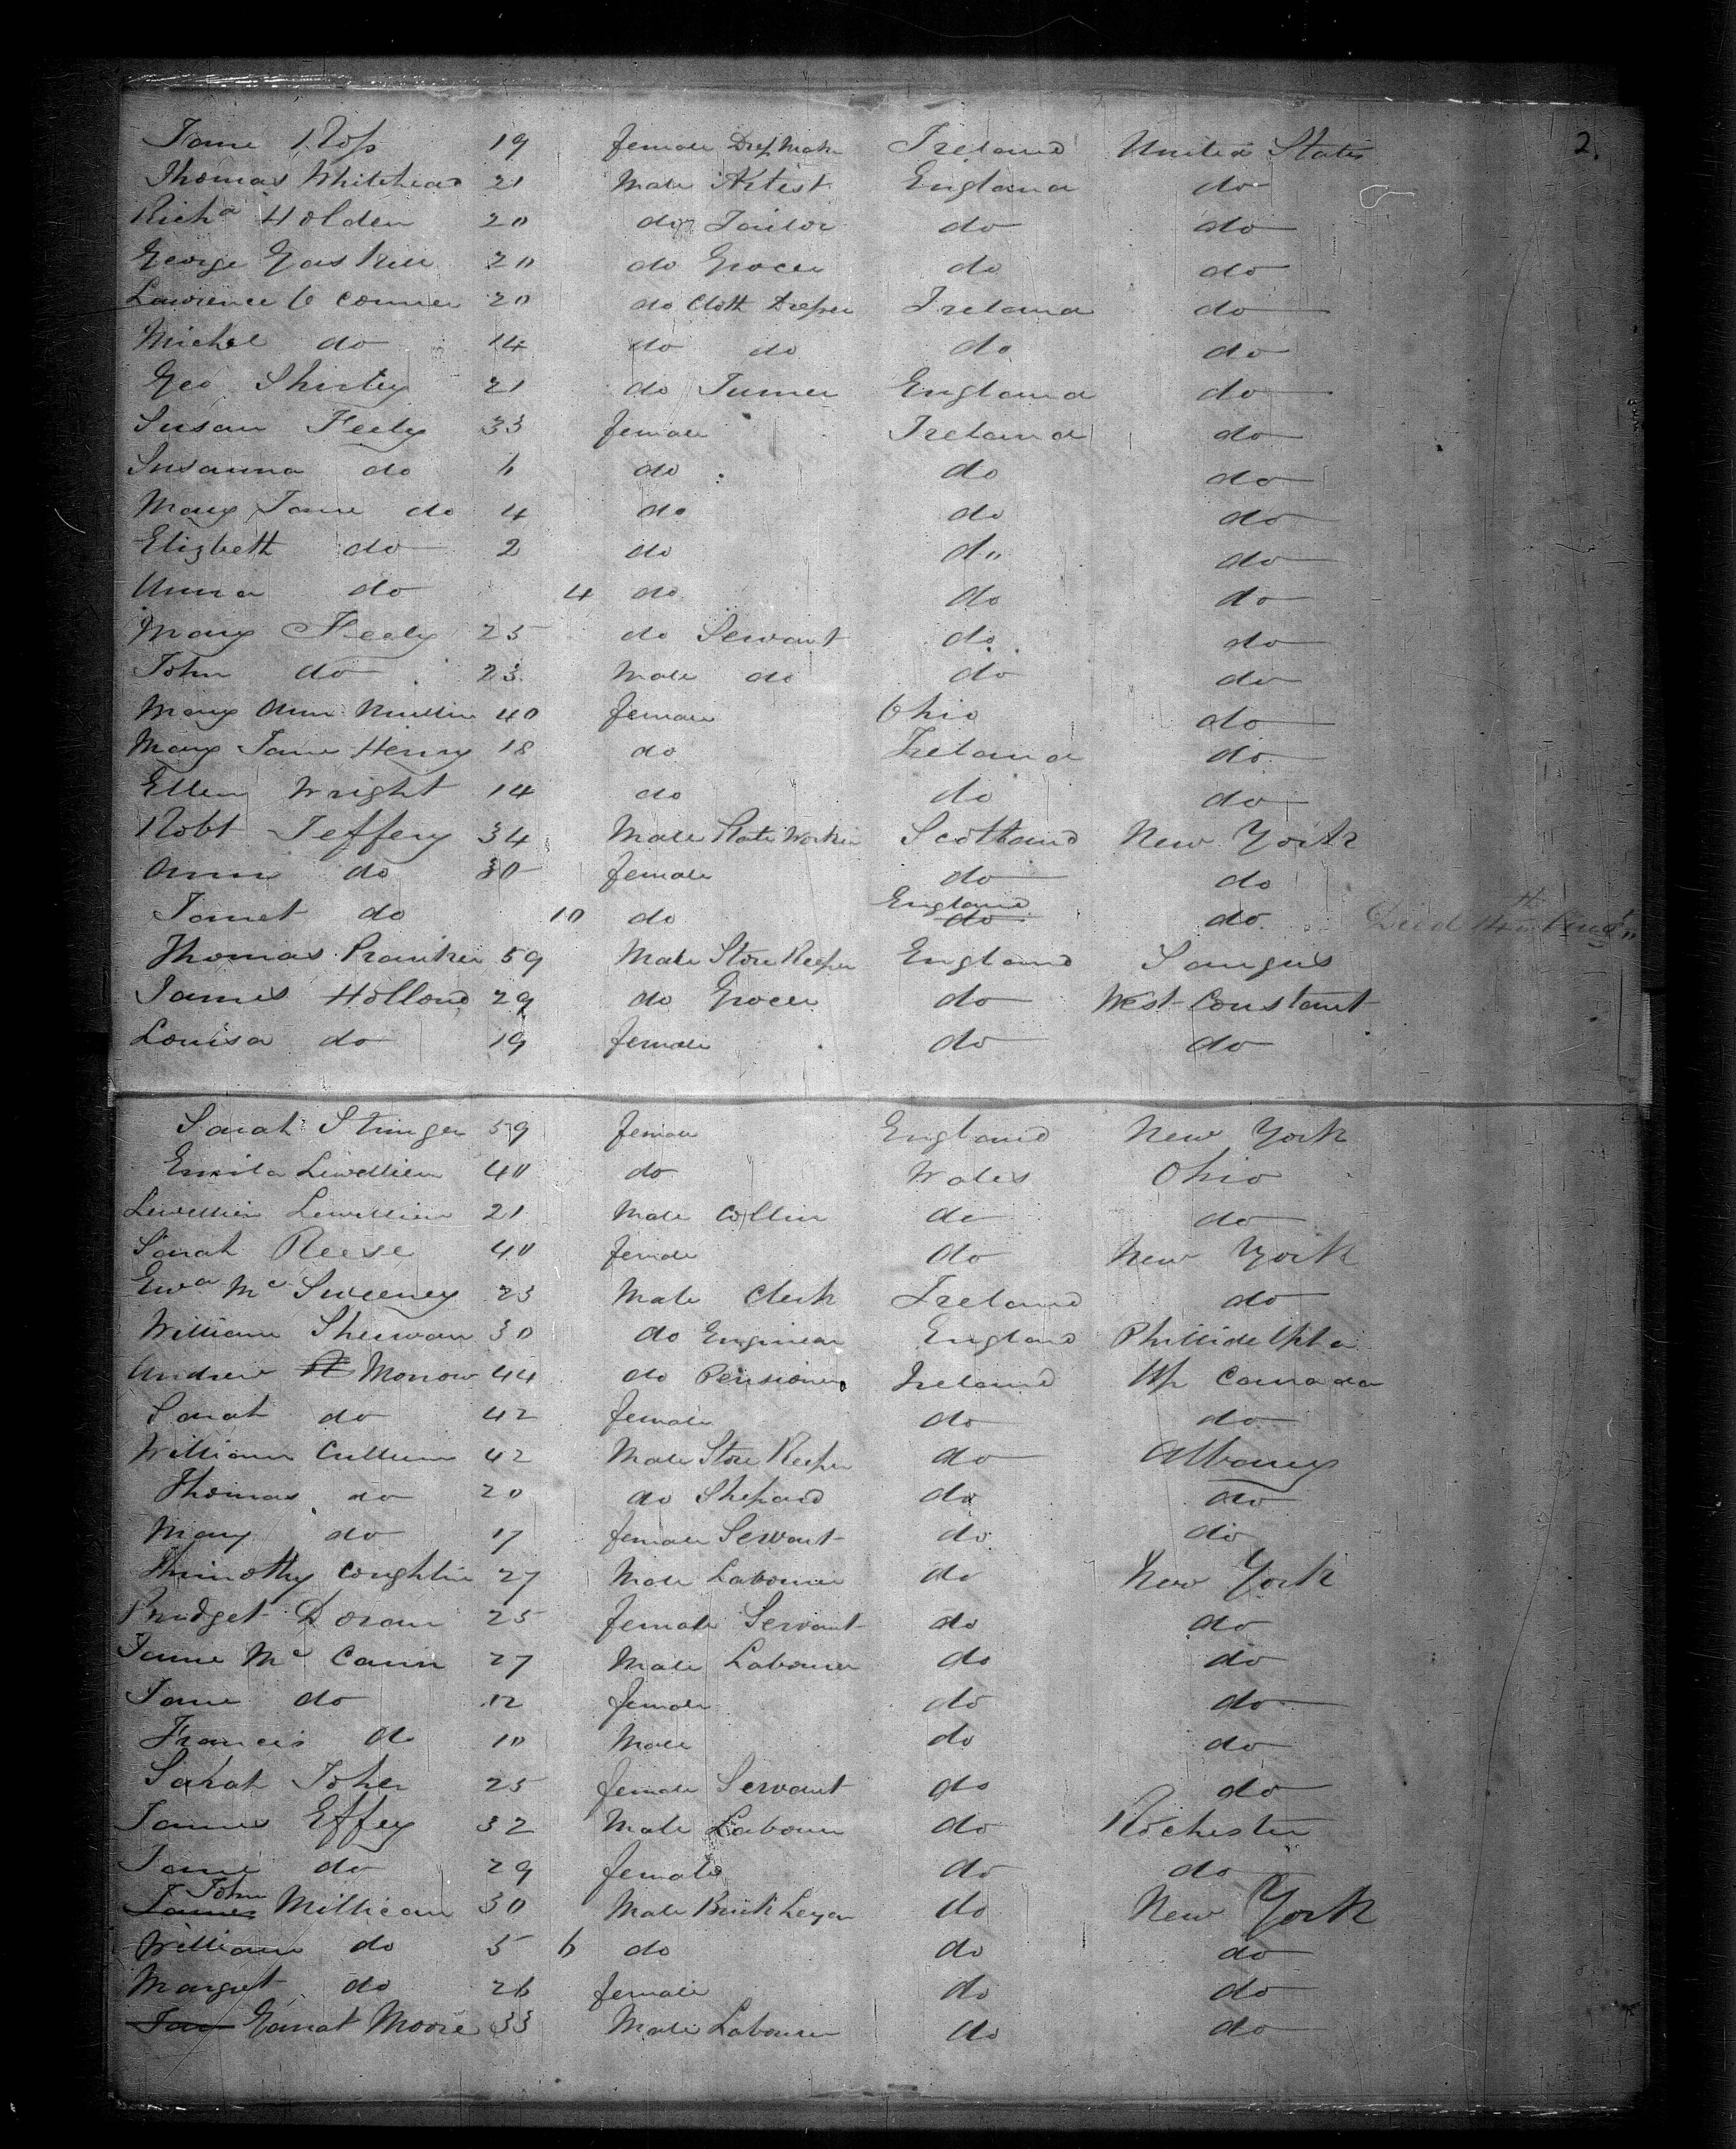 2.
Jane Ross 19 female Dress Maker Ireland United States
Thomas Whitehead 21 Male Artist England do
Richd Holden 20 do Tailor do do
George Gaskell 20 do Grocer do do
Lawrence O Conner 20 do Cloth Ireland do
Michel do 14 do do do do
Geo Shirley 21 do Turner England do
Susan Feely 33 female Ireland do
Susanna do 6 do do do
Mary Jane do 4 do do do
Elizbeth do 2 do do do
Anna do 4 do do do
Mary Feely 25 do Servant do do
John do 23 Male do do do
Mary Ann Mullin 40 female Ohio do
Mary Jane Henry 18 do Ireland do
Ellen Wright 14 do do do
Robt Jeffery 34 Male Slate Worker Scotland New York
Ann do 30 female do do
Janet do 10 do England do do Died 14th Augt
Thomas 59 Male Store Keeper England Saugus
James Holland 29 do Grocer do West Constant
Louisa do 19 female do do
Sarah Stringer 59 female England New York
Lewellien 40 do Wales Ohio
Lewellien Lewellien 21 Male Collier do do
Sarah Reese 40 female do New York
Edwd Mc Sweeney 23 Male Clerk Ireland do
William Sherwan 30 do Enginear England Phillidelpha
Andrew Morrow 44 do Pensioner Ireland Up Canada
Sarah do 42 female do do
William Cullum 42 Male Store Keeper do Albany
Thomas do 20 do Shepard do do
Mary do 17 female Servant do do
Thimothy Coughlin 27 Male Labourer do New York
Bridget Doran 25 female Servant do do
Jame Mc Cann 27 Male Labourer do do
Jane do 12 female do do
Francis do 10 Male do do
Sarah Toher 25 female Servant do do
James Effey 32 Male Labourer do Rochester
Jane do 29 female do do
James John Millican 30 Male Brick Layer do New York
William do 5 6 do do do
Margret do 26 female do do
Jan Garrat Moore 33 Male Labourer do do